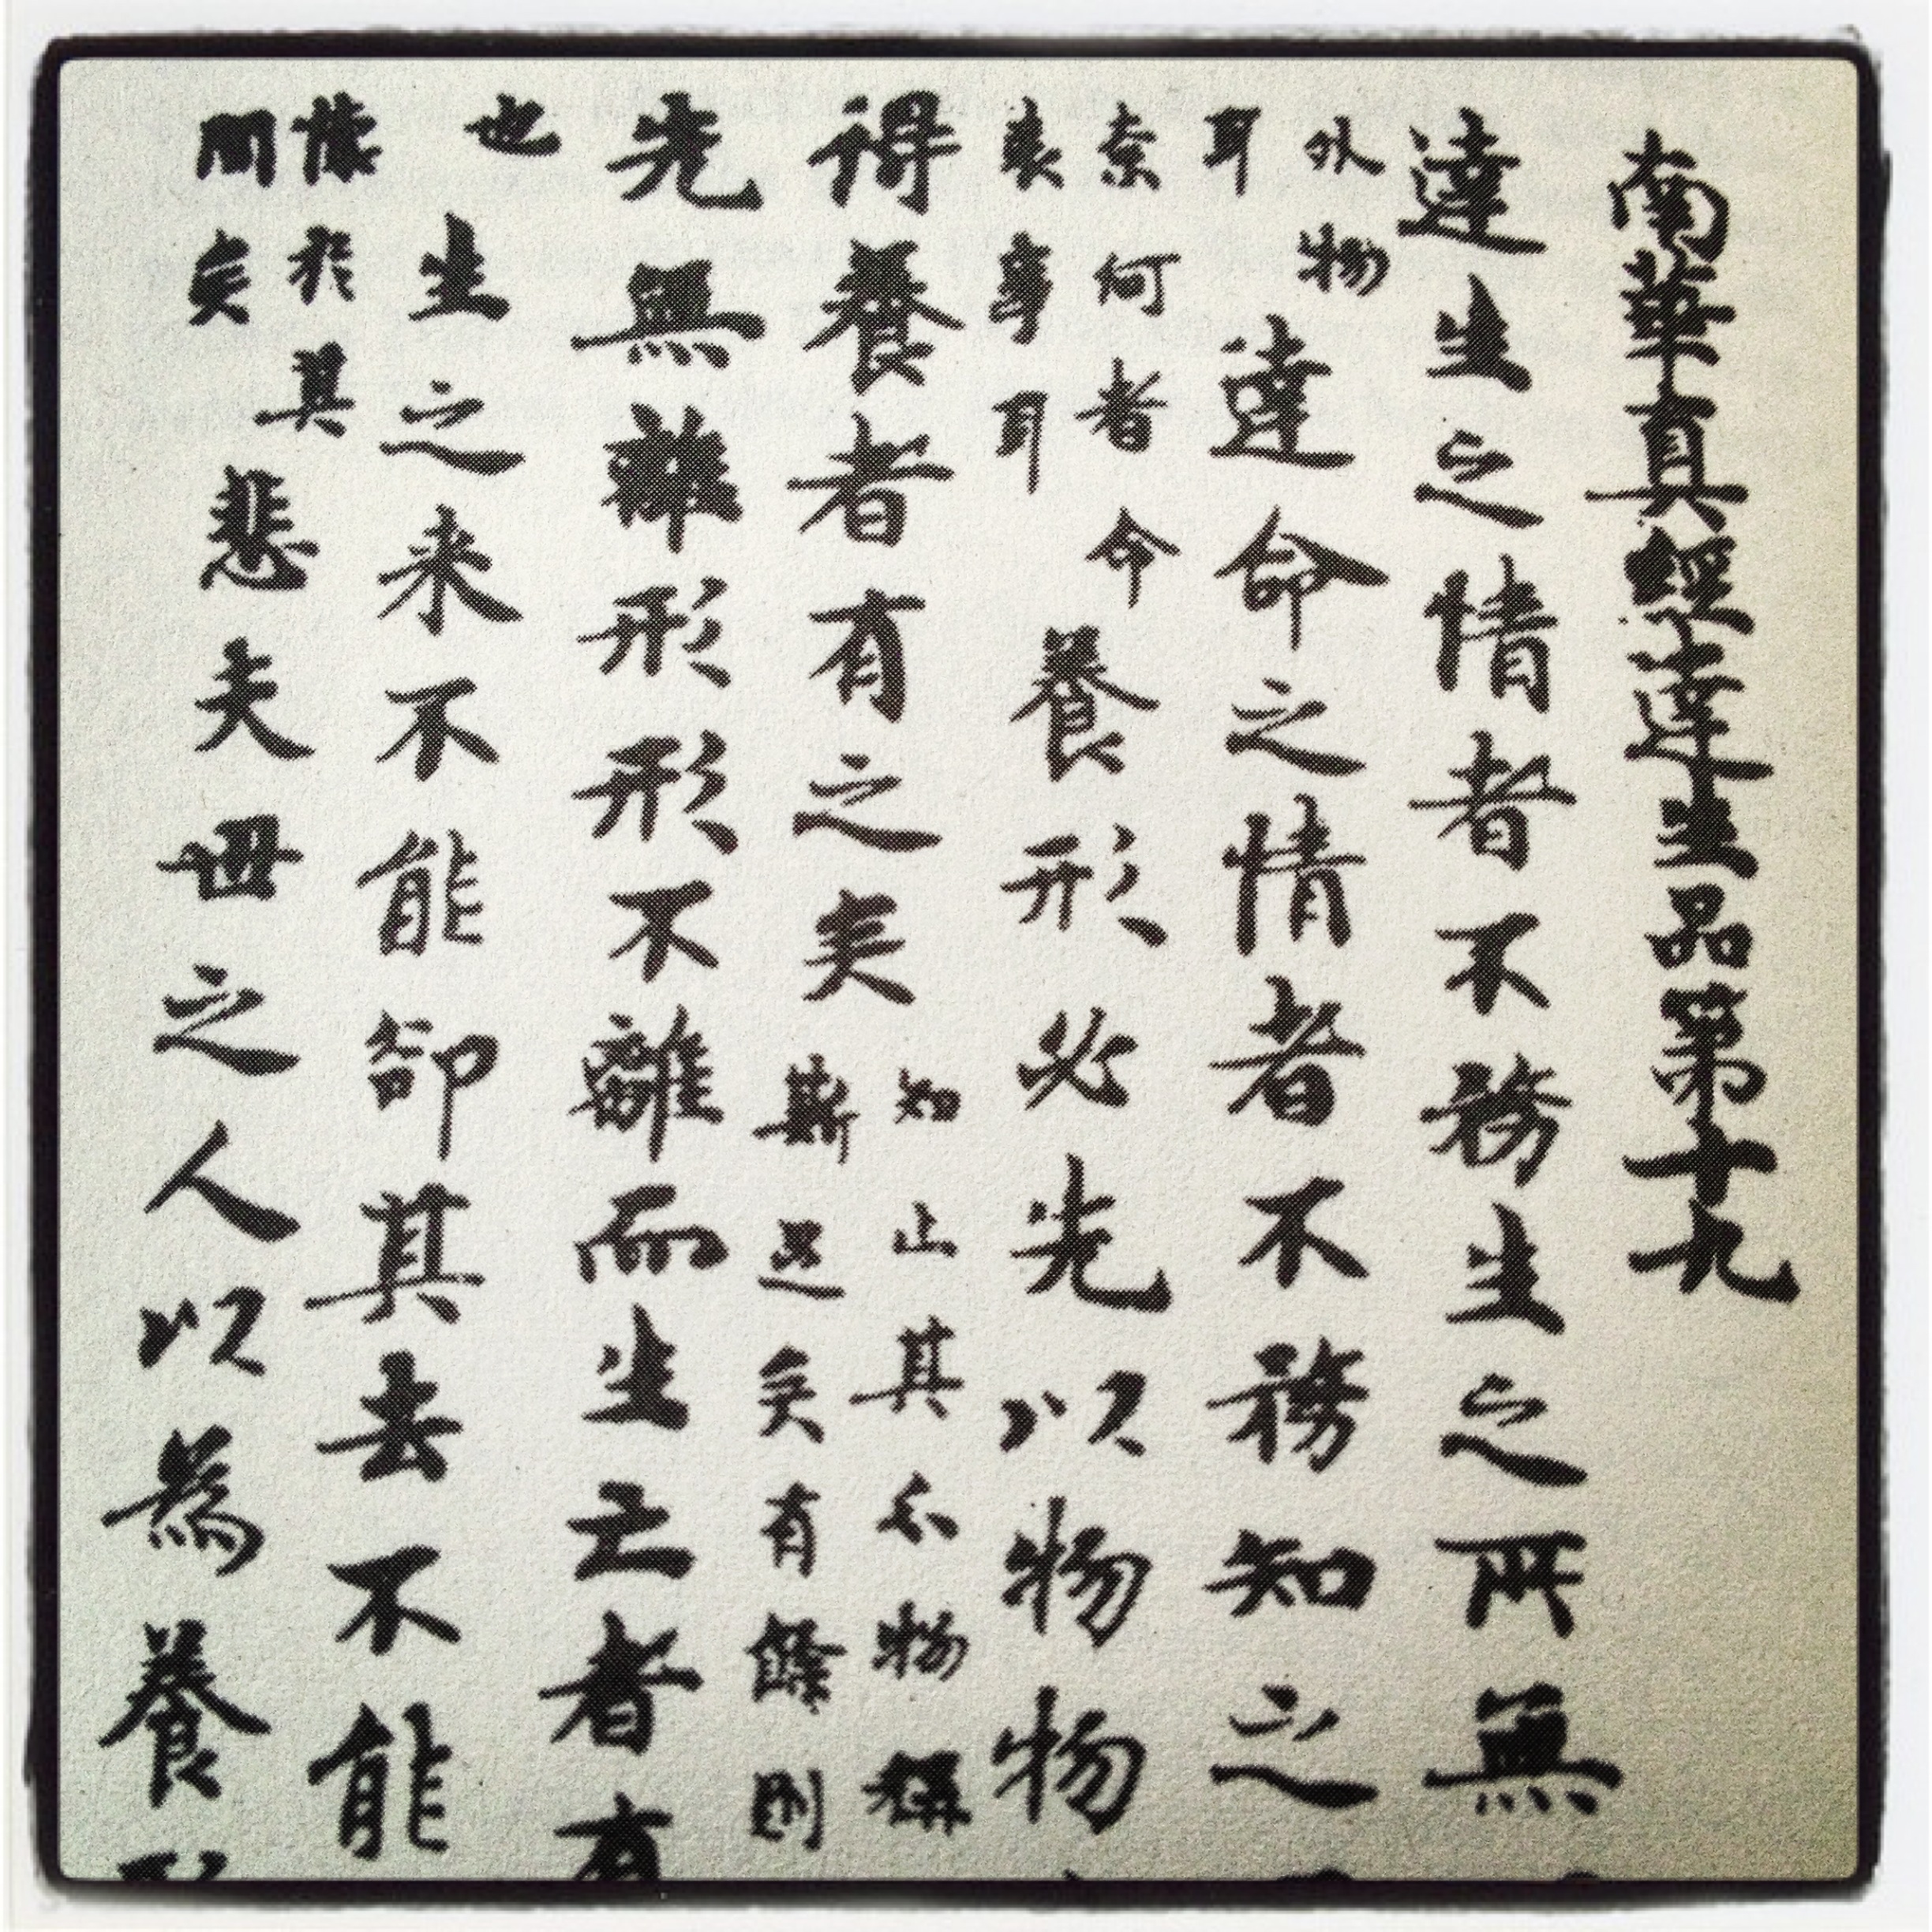 南華真經達生品第十九
達生之情者不務生之所無
外物
耳
達命之情者不務知之
柰何者命
表事耳
養形必先以物物
得養者有之矣
知止其分物稱
斯足矣有餘則
先無離形形不離而生亡者有
也
生之来不能卻其去不能
懐於其
間矣
悲夫世之人以為養